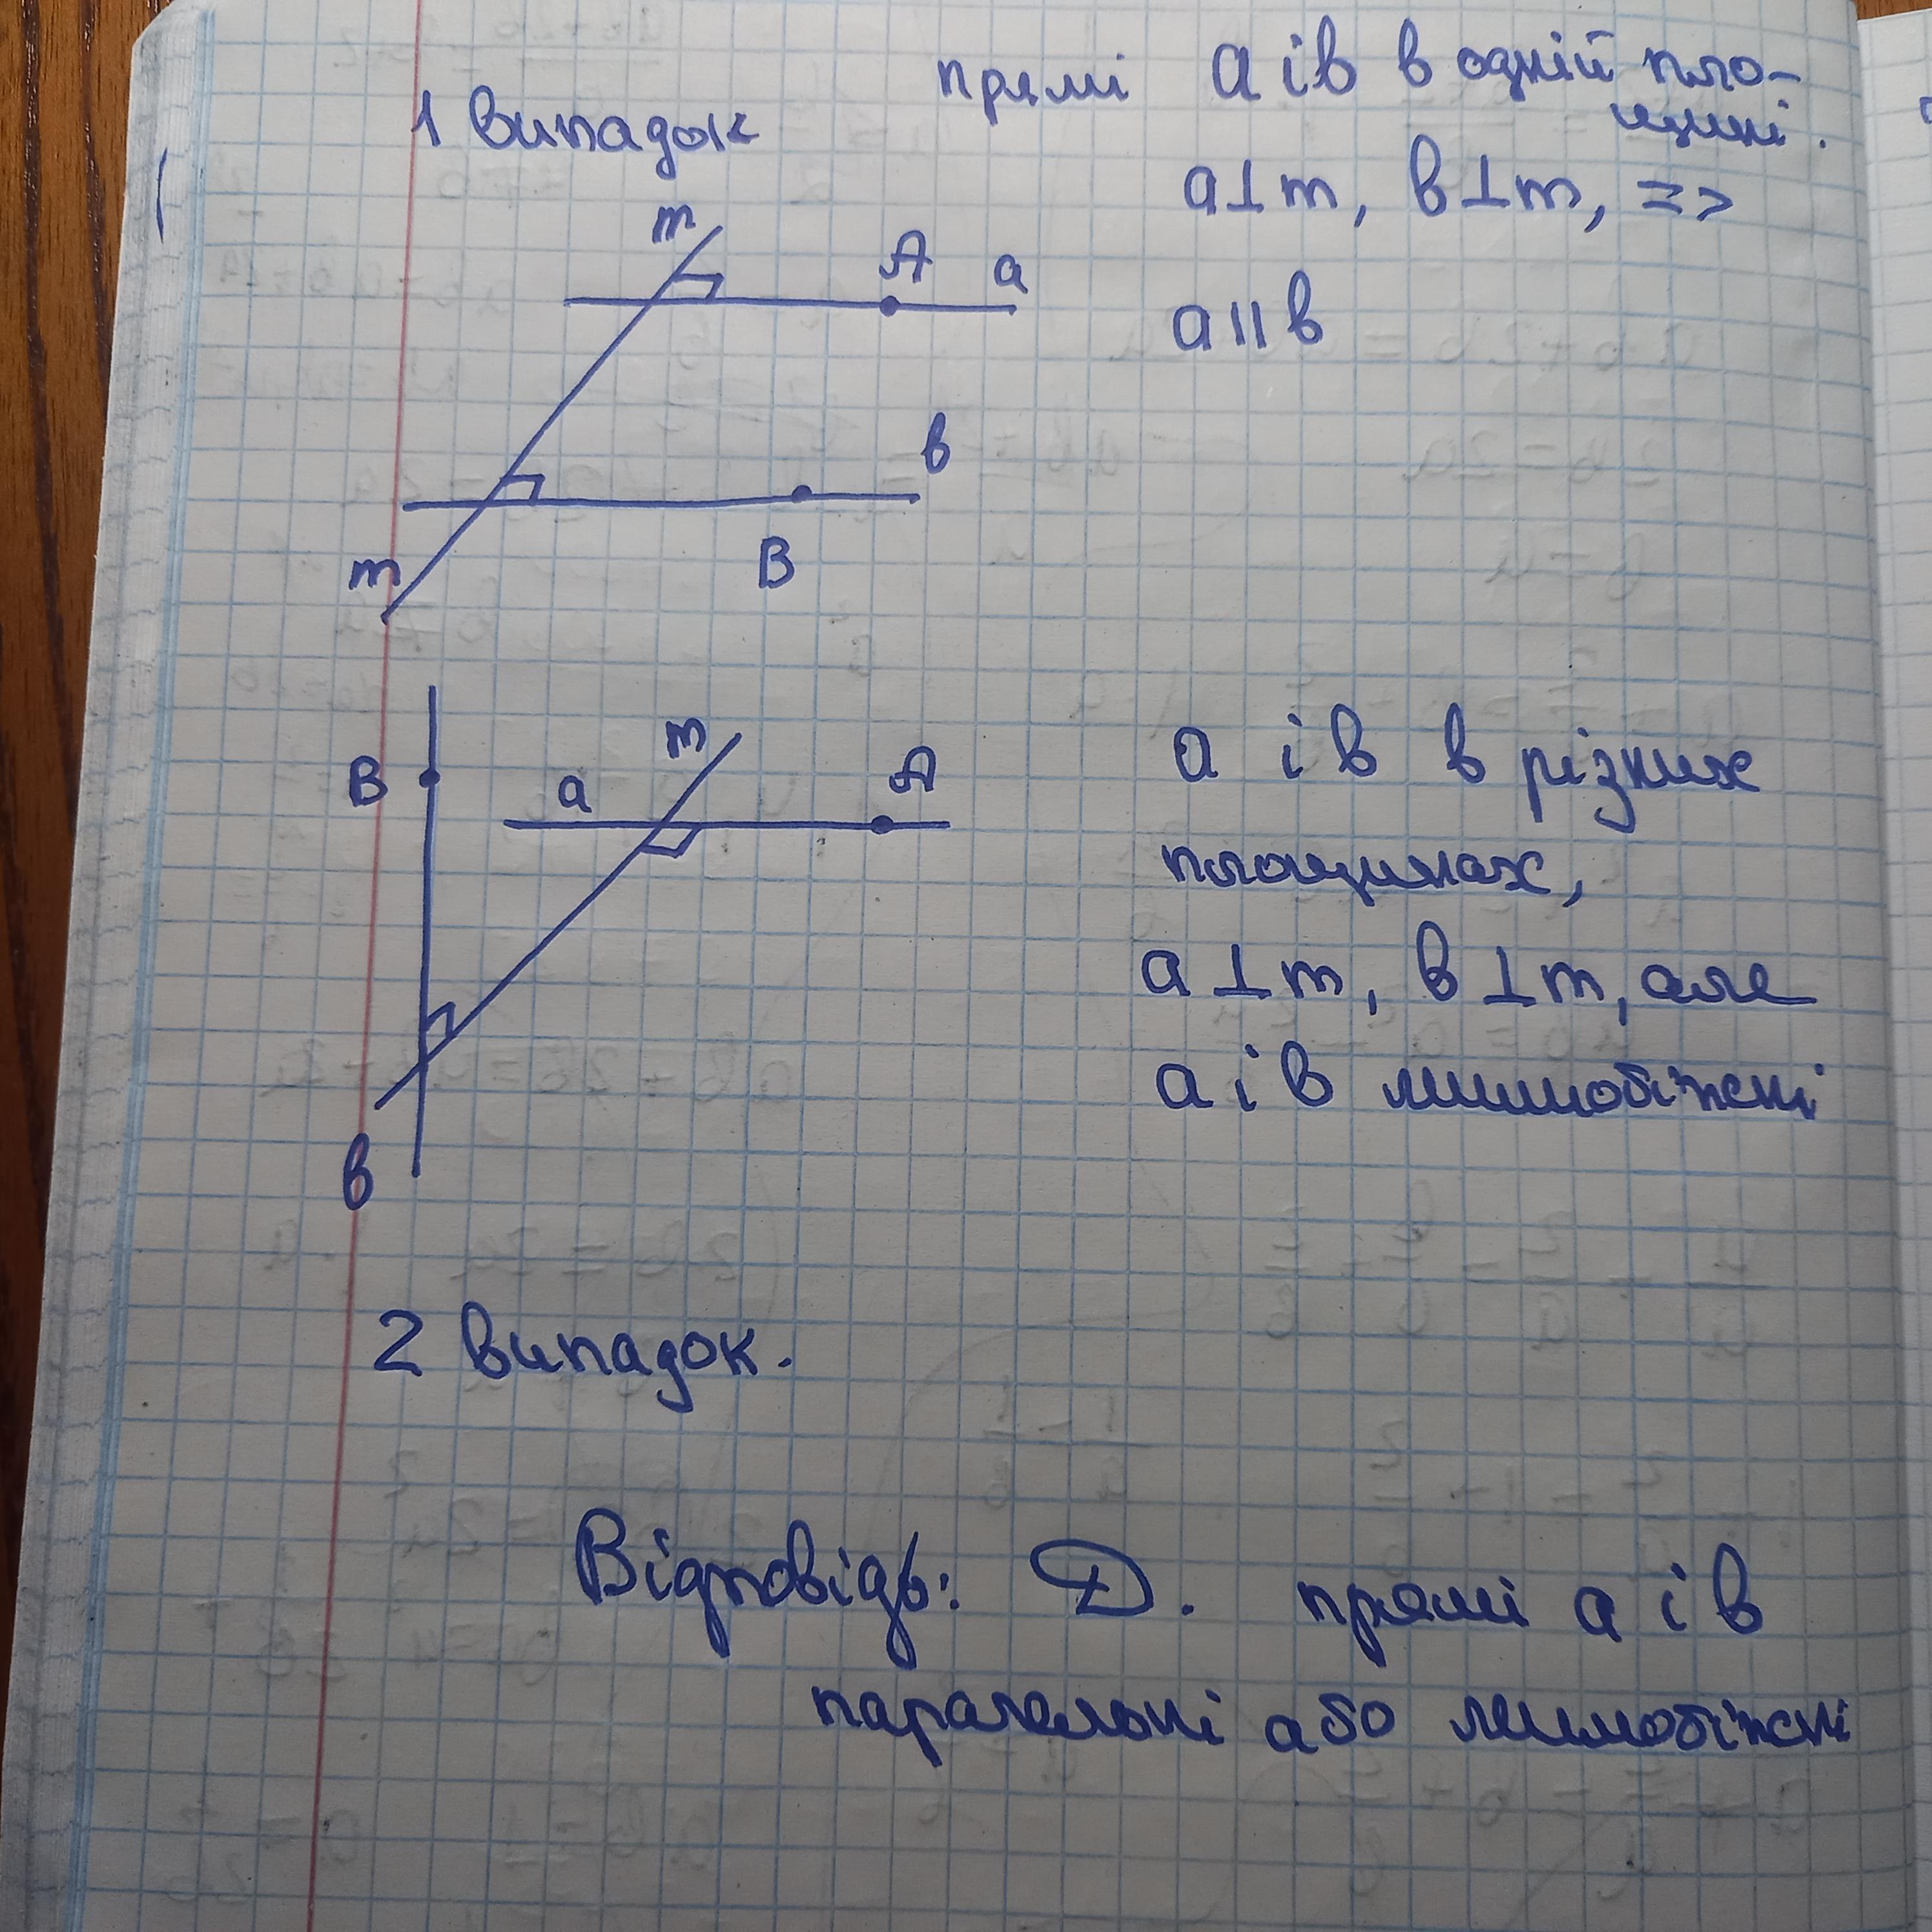 1 випадок
прямі а і в в одній пло-
щині.
а⊥m, в⊥m, =>
а॥в
m
А а
в
В
m
В
а
m
А
в
а і в в різних
площинах,
а⊥m, в⊥m, але
а і в мимобіжні
2 випадок.
Відповідь: Д. прямі а і в
паралельні або мимобіжні